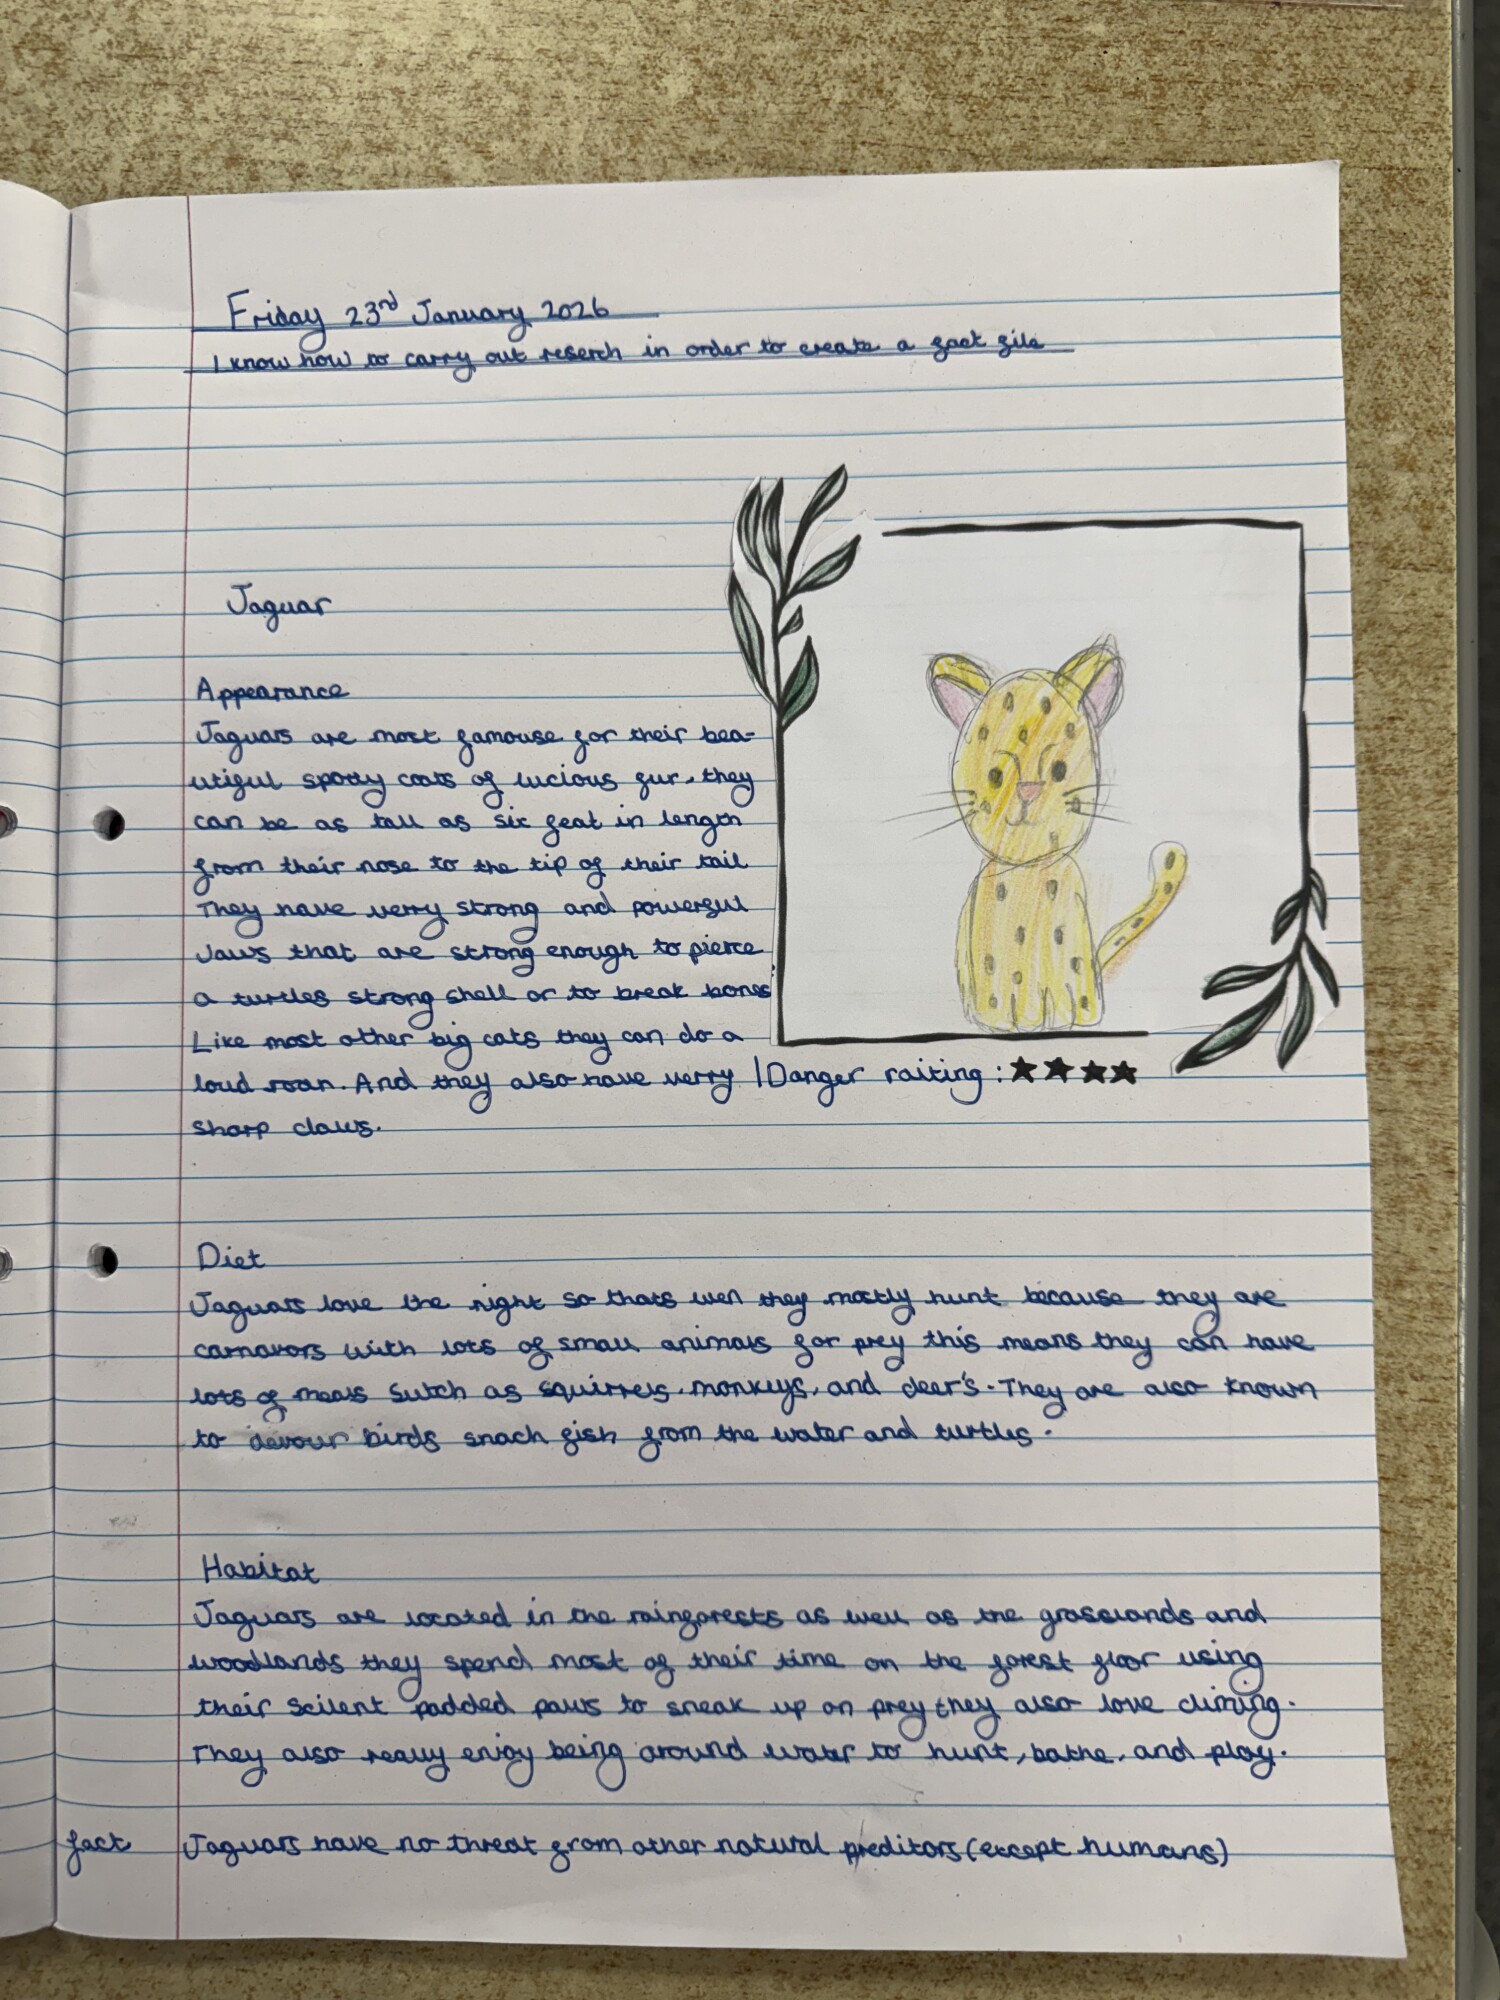 Friday 23rd January 2026
I know how to carry out reserch in order to create a fact file
Jaguar
Appearance
Jaguars are most famouse for their bea-
utiful spotty coats of lucious fur. they
can be as tall as six feat in length
from their nose to the tip of their tail
They have verry strong and powerful
Jaws that are strong enough to pierce
a turtles strong shell or to break bones
Like most other big cats they can do a
loud roar. And they also have verry
sharp claws.
Danger raiting : ★★★★
Diet
Jaguars love the night so thats wen they mostly hunt because they are
carnavors with lots of small animals for prey this means they can have
lots of meals sutch as squirrels, monkeys, and deer's. They are also known
to devour birds snach fish from the water and turtles.
Habitat
Jaguars are located in the rainforests as well as the grasslands and
woodlands they spend most of their time on the forest floor using
their scilent padded paws to sneak up on prey they also love climing.
They also really enjoy being around water to hunt, bathe, and play.
fact Jaguars have no threat from other natural preditors (except humans)